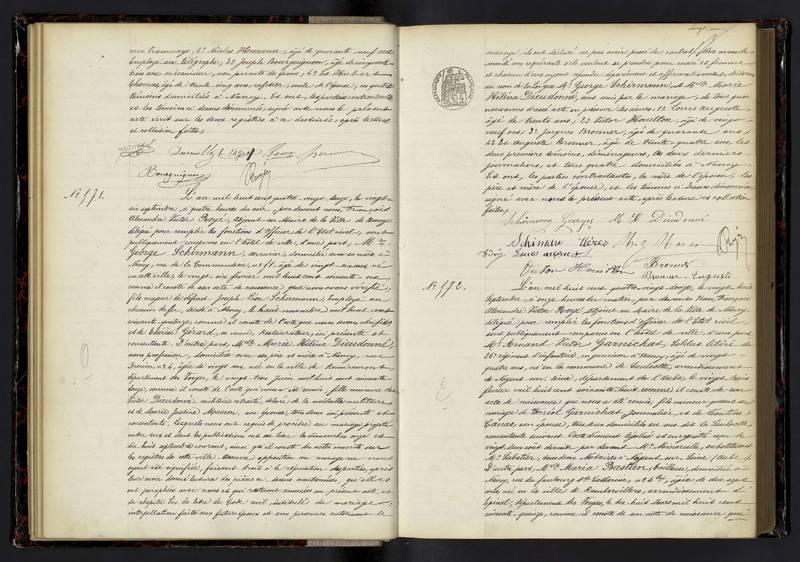 aux tramways, 2° Nicolas Hermann, âgé de quarante neuf ans
Employé au télégraphe; 3° Joseph Bourguignon, âgé de cinquante
trois ans mécanicien, non parents du futur; 4° et
Thomas, âgé de trente cinq ans, cafetier, oncle de l'épouse, ces quatre
témoins domiciliés à Nancy. Et ont, les parties contractantes
et les témoins ci dessus dénommés, signé avec nous le présent
acte civil sur les deux registres à ce destinés, après lecture
et collation faites.
Bourguignon
N° 171.
L'an mil huit cent quatre vingt douze, le vingt
six septembre, à quatre heures du soir, par devant nous, François
Alexandre Victor Rozé, adjoint au Maire de la Ville de Nancy
délégué pour remplir les fonctions d'Officier de l'Etat civil, sont
publiquement comparus en l'hôtel de ville, d'une part, Mr.
George Schirmann, ouvrier, domicilié avec sa mère à
Nancy, rue de la
en cette ville, le vingt six février mil huit cent soixante
comme il conste de son acte de naissance que nous avons vérifié,
fils majeur de défunt Joseph Léon Schirmann, Employé au
chemin de fer, décédé à Nancy, le huit novembre mil huit cent
soixante quatorze, comme il conste de l'acte que nous avons vérifié
et de Thérèse Gérard, sa veuve, restaurateur, ici présente et
consentante. D'autre part, Melle Marie Hélène Dieudonné,
sans profession, domiciliée avec ses père et mère à Nancy, rue
n° 24, âgée de vingt ans, née en la ville de Remiremont
département des Vosges, le vingt trois Juin mil huit cent soixante
douze, comme il conste de l'acte qui nous a été remis, fille mineure de
Victor Dieudonné, militaire retraité, décoré de la médaille militaire
et de Marie Justine Masson, son épouse, tous deux ici présents et
consentants. Lesquels nous ont requis de procéder au mariage projeté
entre eux et dont les publications ont eu lieu les dimanches onze et
dix huit septembre courant, ainsi qu'il conste de
les registres de cette ville. Aucune opposition au mariage ne nous
ayant été signifiée, faisant droit à la réquisition des parties, après
leur avoir donné lecture des pièces ci dessus mentionnées, qu'elles
ont paraphées avec nous et qui resteront annexées au présent acte, et
du chapitre six du titre du Code civil, intitulé du mariage,
interpellation faite aux futurs époux et aux personnes autorisant le
mariage, ils ont déclaré ne pas avoir passé de contrat. Nous avons de-
mandé aux requérants s'ils veulent se prendre pour mari et femme
et chacun d'eux ayant répondu séparément et affirmativement, déclarons
au nom de la loi que Mr. George Schirmann et Melle Marie
Hélène Dieudonné, sont unis par le mariage, de tout quoi
nous avons dressé acte en présence des sieurs 1° Louis Auguste
âgé de trente ans; 2° Victor Houillon, âgé de vingt
neuf ans; 3° Jacques Bronner, âgé de quarante ans;
4° et Auguste Bronner, âgé de trente quatre ans, les
deux premiers témoins, déménageurs, les deux derniers
journaliers, et tous quatre domiciliés à Nancy
Et ont, les parties contractantes, la mère de l'époux, les
père et mère de l'épouse, et les témoins ci dessus dénommés,
signé avec nous le présent acte, après lecture et collation
faites.
Schirmann Georges M H Dieudonné
Victor Houillon Bronner
Bronner Auguste
N° 172.
L'an mil huit cent quatre vingt douze, le vingt huit
Septembre, à onze heures du matin, par devant Nous François
Alexandre Victor Rozé, adjoint au Maire de la Ville de Nancy
délégué pour remplir les fonctions d'Officier de l'Etat civil,
sont publiquement comparus en l'hôtel de ville, d'une part,
Mr. Amand Victor Garnichat, Soldat libéré du
26e régiment d'infanterie, en garnison à Nancy, âgé de vingt
quatre ans, né en la commune de arrondissement
de Nogent sur Seine, département de l'Aube, le vingt trois
février mil huit cent soixante huit, comme il conste de son
acte de naissance qui nous a été remis, fils mineur quant au
mariage de Garnichat, journalier, et de
son épouse, tous deux domiciliés au dit
consentants suivant l'acte
vingt deux août dernier par devant Me. substituant
Me. tous deux notaires à Nogent sur Seine (Aube).
D'autre part, Melle Maria Bastien, tailleuse, domiciliée à
Nancy, rue du faubourg Ste Catherine, n° 4 bis, âgée de dix sept
ans, née en la ville de Rambervillers, arrondissement d'
Epinal, département des Vosges, le dix huit mars mil huit cent
soixante quinze, comme il conste de son acte de naissance qui